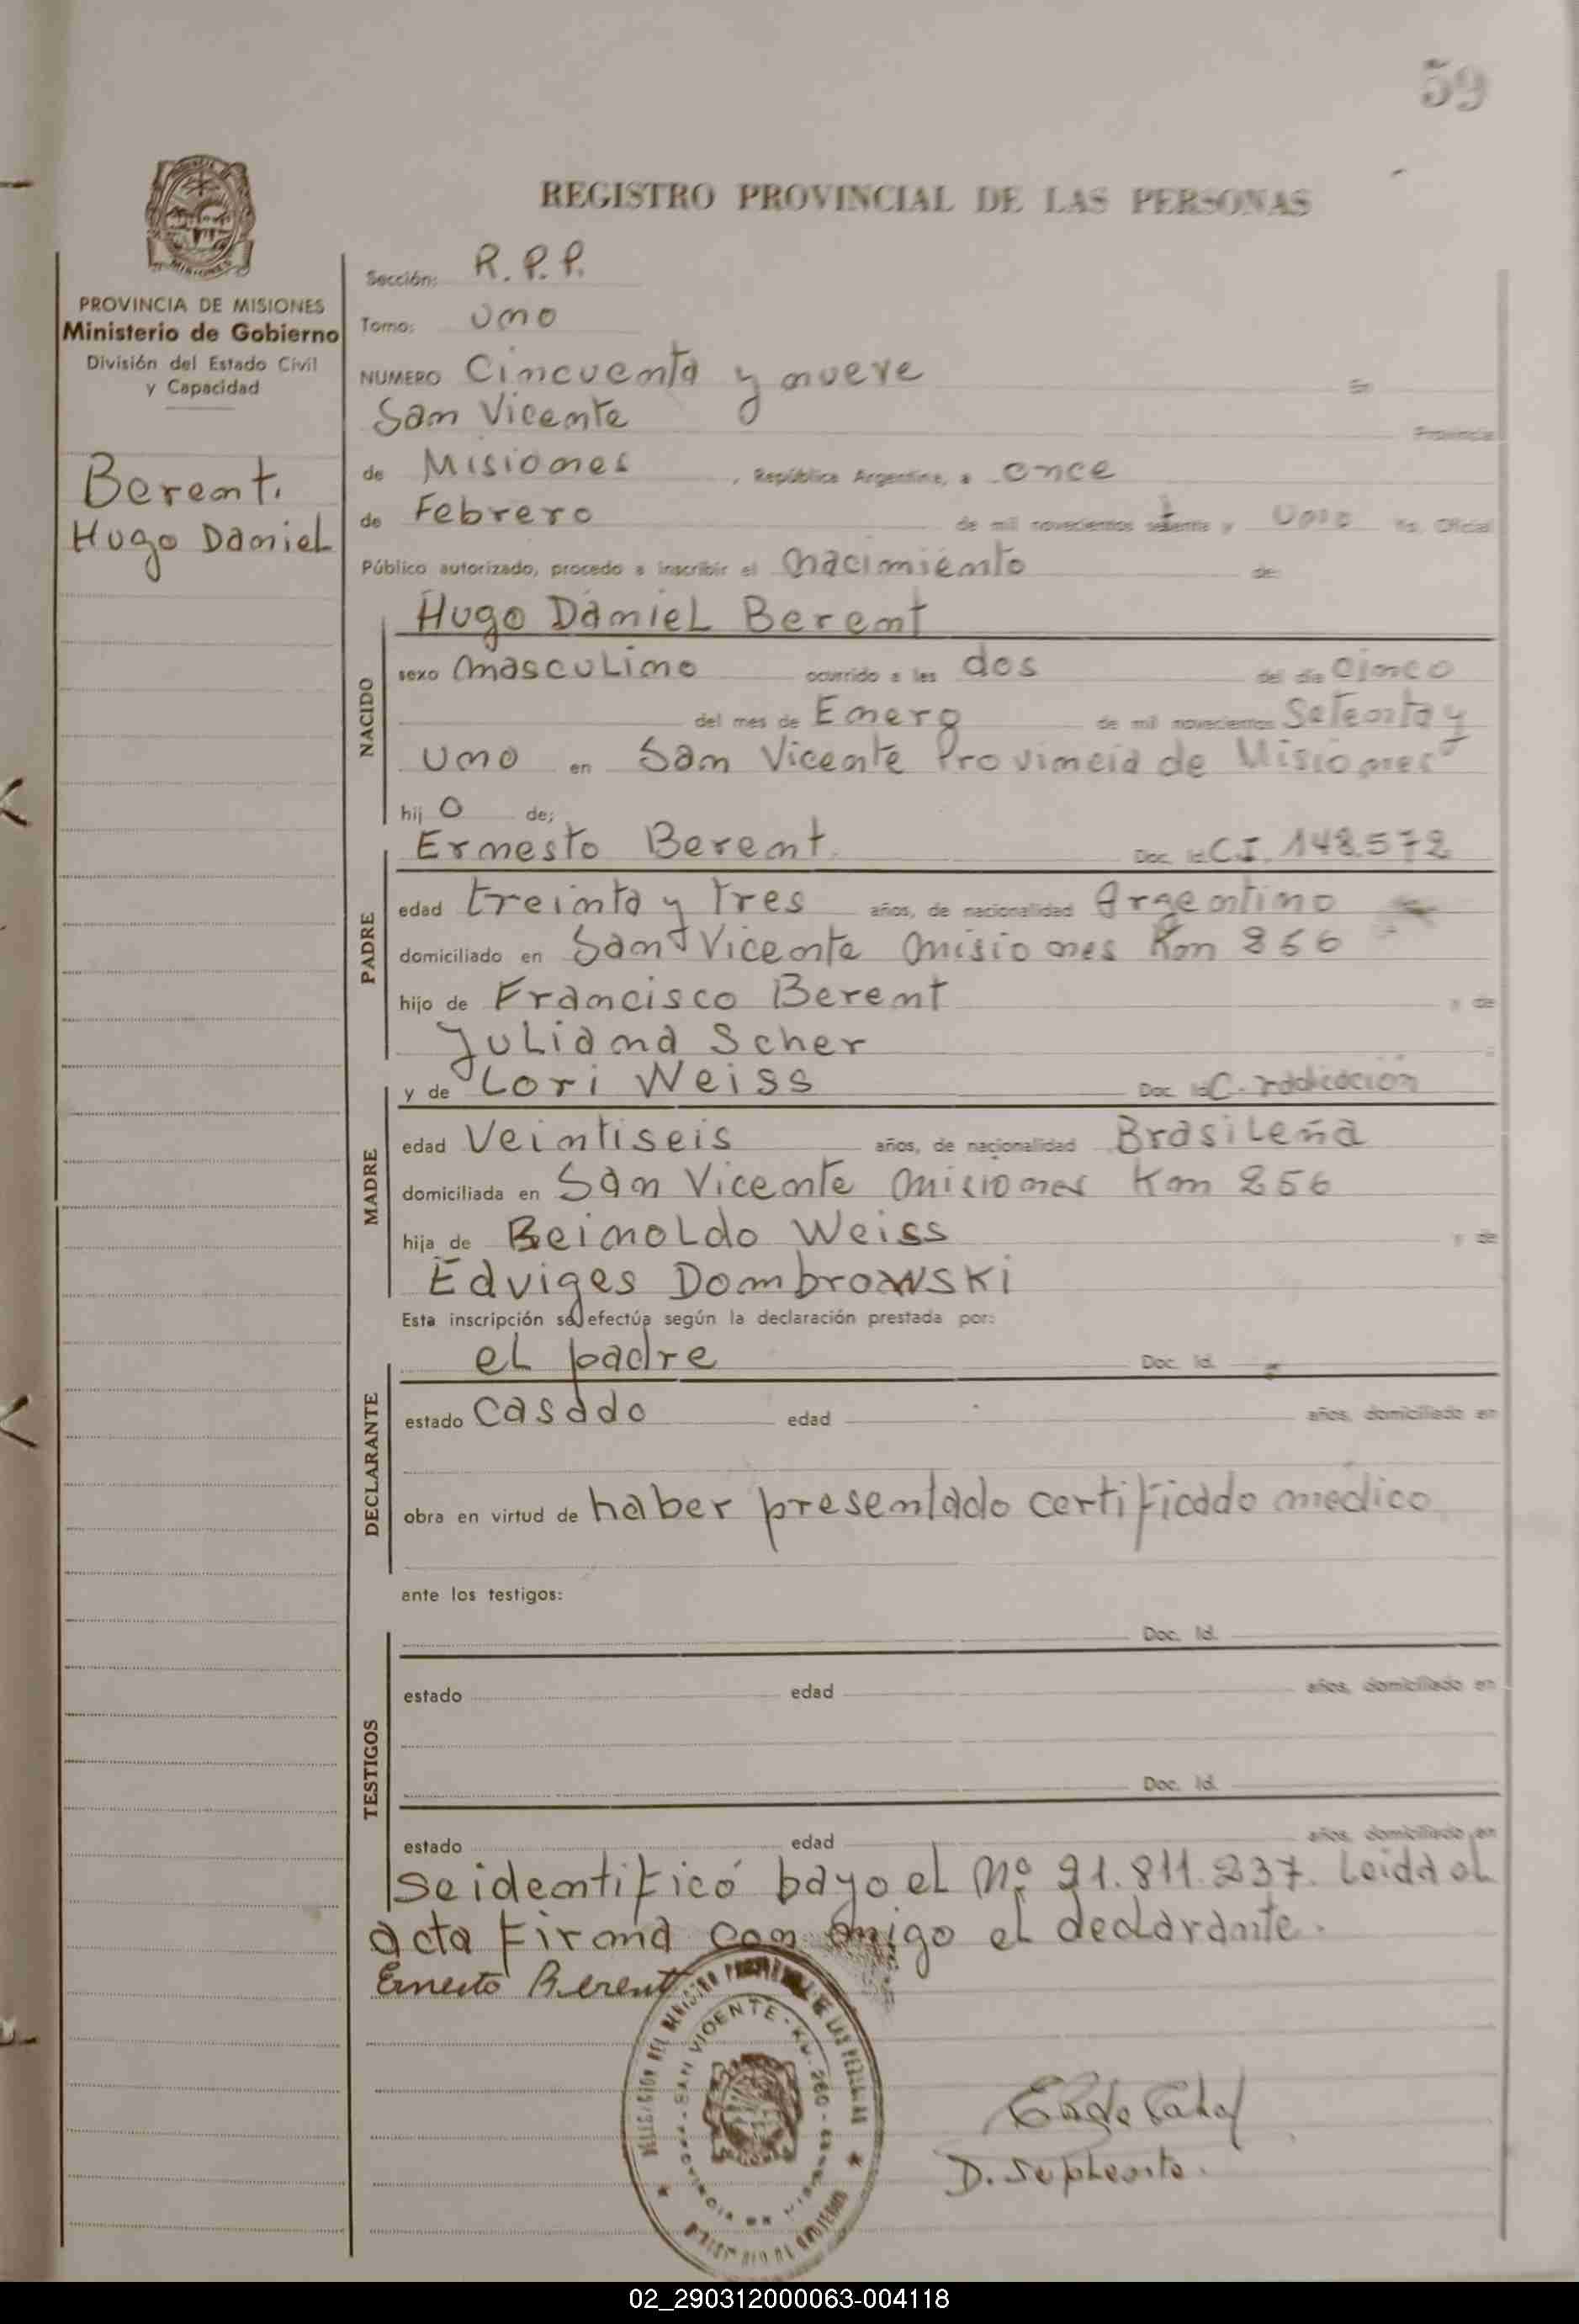 59
REGISTRO PROVINCIAL DE LAS PERSONAS
PROVINCIA DE MISIONES
Ministerio de Gobierno
División del Estado Civil
y Capacidad
Berent.
Hugo Daniel
Sección: R.P.P.
Tomo: uno
NUMERO Cincuenta y nueve En
San Vicente Provincia
de Misiones, República Argentina, a once
de Febrero de mil novecientos setenta y uno Yo, Oficial
Público autorizado, procedo a inscribir el nacimiento de:
NACIDO
Hugo Daniel Berent
sexo masculino ocurrido a las dos del día cinco
del mes de Enero de mil novecientos Setenta y
uno en San Vicente Provincia de Misiones
hijo de;
PADRE
Ernesto Berent Doc. Id. C.I. 148.572
edad treinta y tres años, de nacionalidad Argentino
domiciliado en San Vicente Misiones Km 256
hijo de Francisco Berent y de
Juliana Scher
MADRE
y de Lori Weiss Doc. Id. C. radicación
edad Veintiseis años, de nacionalidad Brasileña
domiciliada en San Vicente Misiones Km 256
hija de Reinoldo Weiss y de
Edviges Dombrowski
Esta inscripción se efectúa según la declaración prestada por:
DECLARANTE
el padre Doc. Id.
estado casado edad años, domiciliado en
obra en virtud de haber presentado certificado medico
ante los testigos:
TESTIGOS
Doc. Id.
estado edad años, domiciliado en
Doc. Id.
estado edad años, domiciliado en
se identificó bayo el Nº 91.811.237. Leida el
acta firma con migo el declarante.
Ernesto Berent
SAN VICENTE - KM. 260
D. Suplente.
02_290312000063-004118